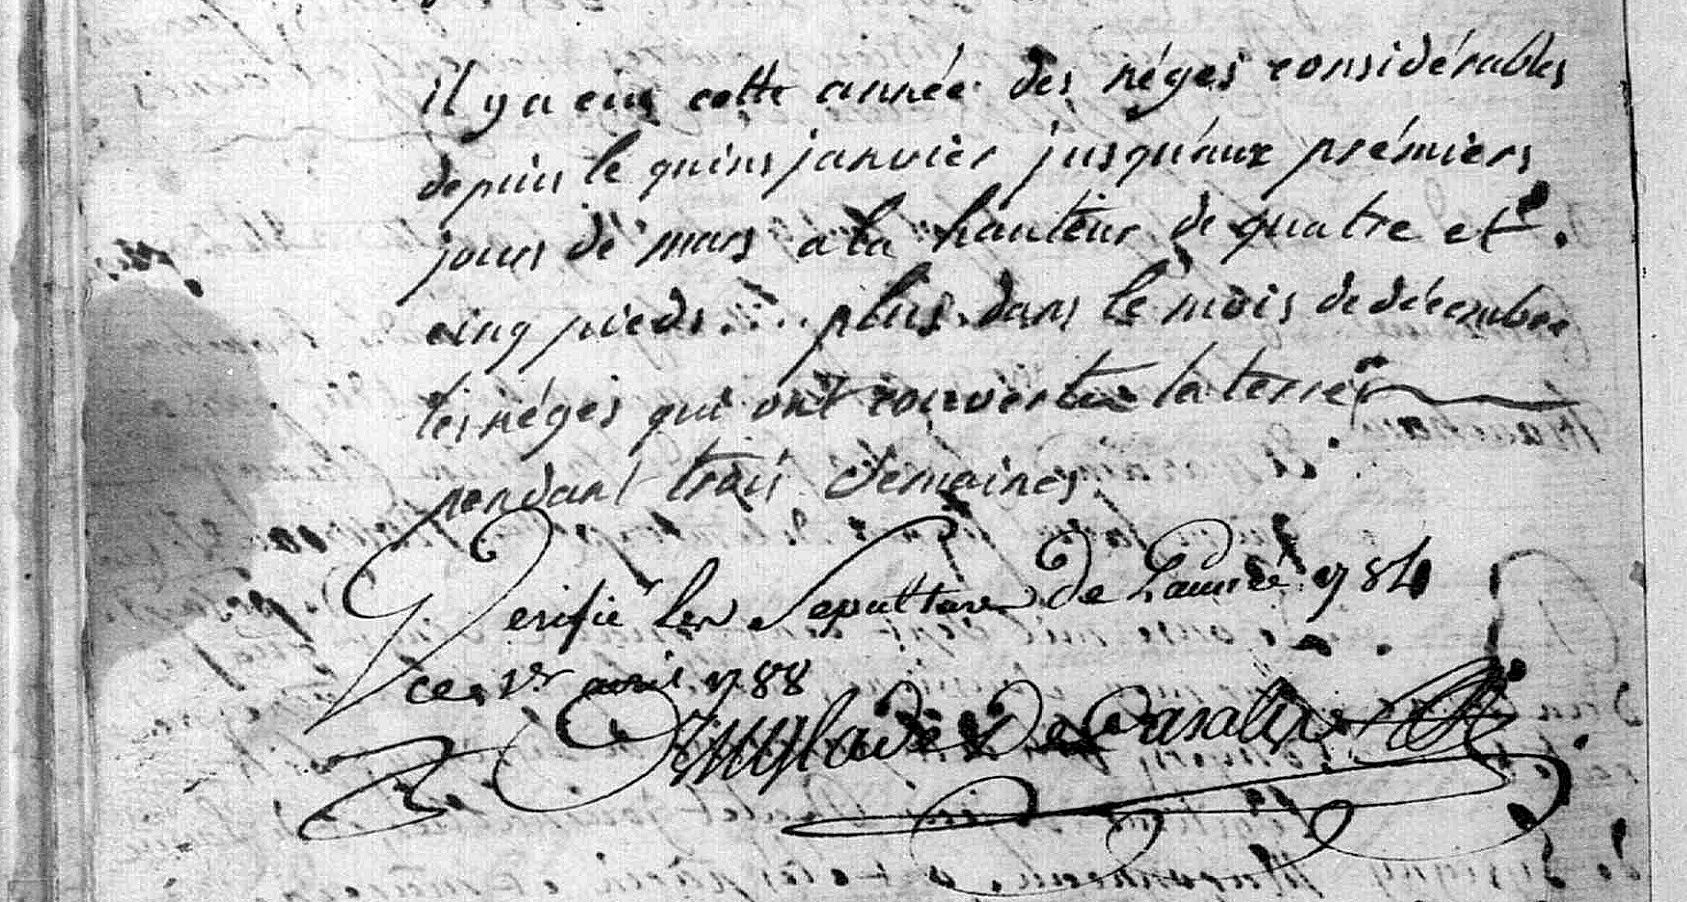 il y a eus cette année des néges considérables
depuis le quins janvier jusqu'aux prémiers
jours de mars a la hauteur de quatre et
cinq pieds.... plus dans le mois de décembre
les néges qui ont couvertes la terre
pendant trois semaines
Verifié les Sepultures de Lannée 1784
ce 1er avril 1788
De